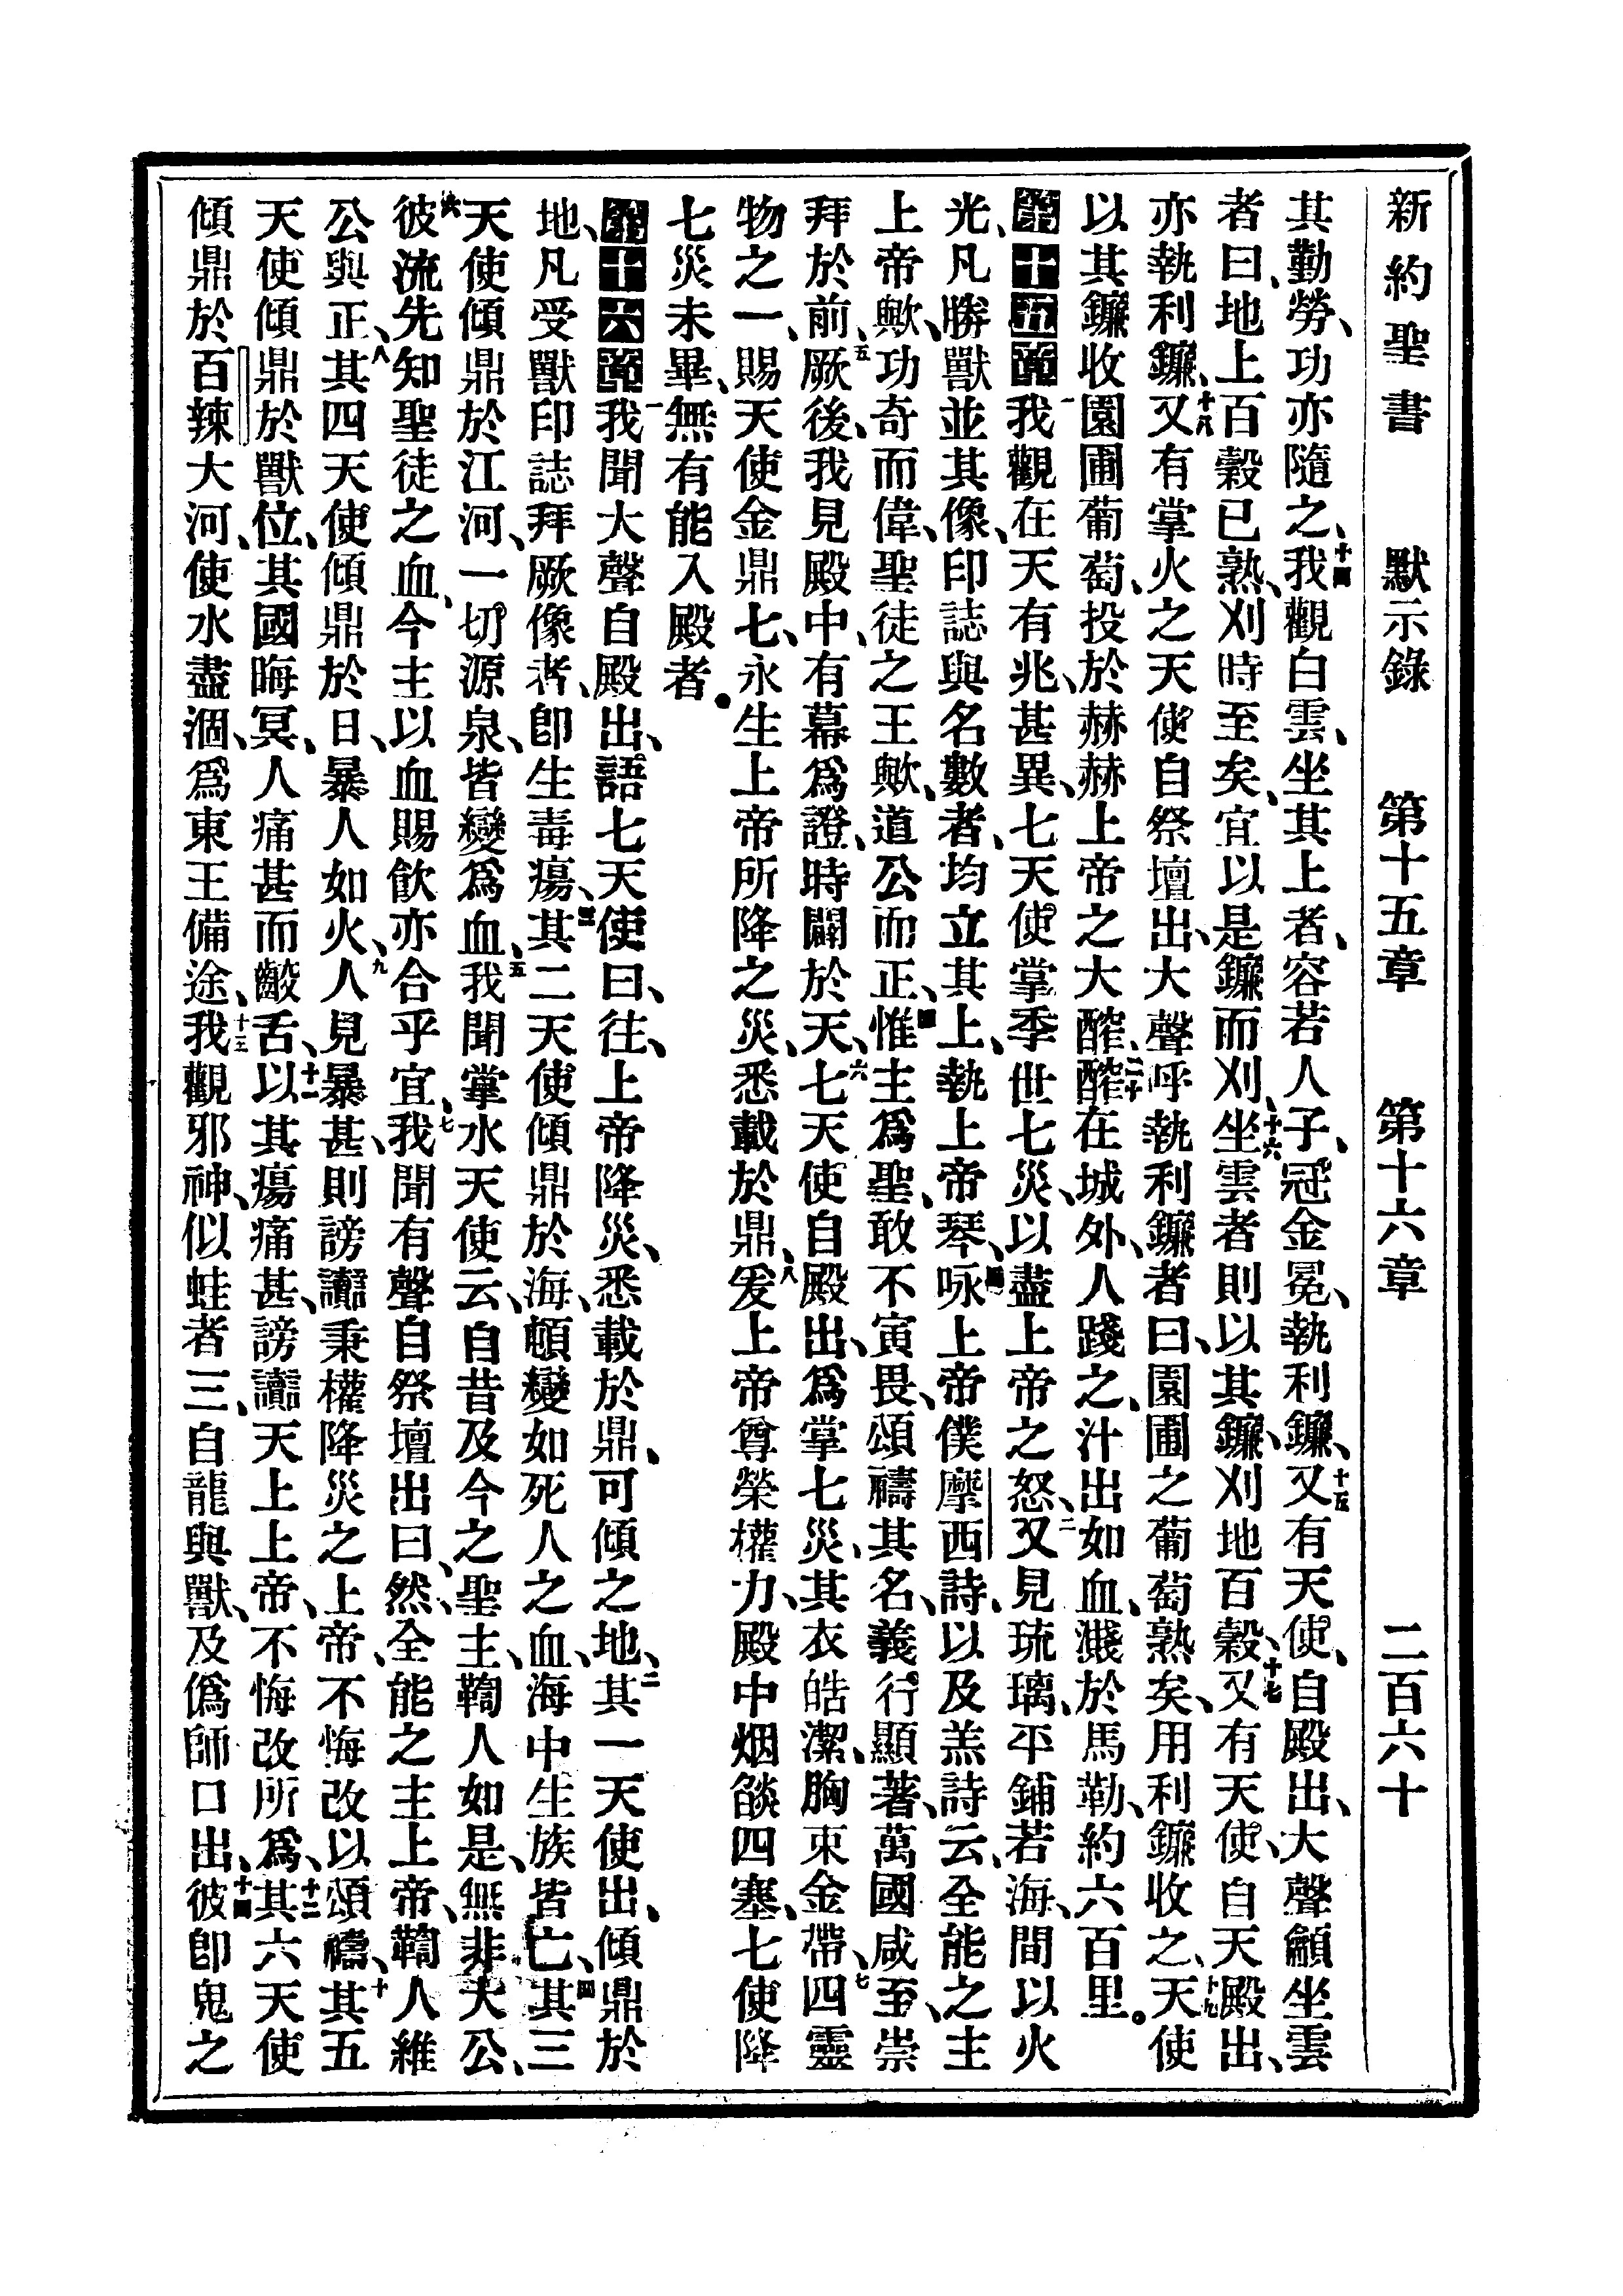 新約聖書 默示錄 第十五章 第十六章 二百六十
其勤勞、功亦隨之、十四我觀白雲、坐其上者、容若人子、冠金冕、執利鐮、十五又有天使、自殿出、大聲籲坐雲
者曰、地上百穀已熟、刈時至矣、宜以是鐮而刈、十六坐雲者則以其鐮、刈地百穀、十七又有天使、自天殿出、
亦執利鐮、十八又有掌火之天使、自祭壇出、大聲呼執利鐮者曰、園圃之葡萄熟矣、用利鐮收之、十九天使
以其鐮收園圃葡萄、投於赫赫上帝之大醡、二十醡在城外、人踐之、汁出如血、濺於馬勒、約六百里。
第十五章一我觀在天有兆、甚異、七天使掌季世七災、以盡上帝之怒、二又見琉璃、平鋪若海、間以火
光、凡勝獸並其像、印誌與名數者、均立其上、執上帝琴、三咏上帝僕摩西詩、以及羔詩云、全能之主
上帝歟、功奇而偉、聖徒之王歟、道公而正、四惟主爲聖、敢不寅畏、頌禱其名、義行顯著、萬國咸至、崇
拜於前、五厥後、我見殿中、有幕爲證、時闢於天、六七天使自殿出、爲掌七災、其衣皓潔、胸束金帶、七四靈
物之一、賜天使金鼎七、永生上帝所降之災、悉載於鼎、八爰上帝尊榮權力、殿中烟燄四塞、七使降
七災未畢、無有能入殿者。
第十六章一我聞大聲自殿出、語七天使曰、往、上帝降災、悉載於鼎、可傾之地、二其一天使出、傾鼎於
地、凡受獸印誌拜厥像者、卽生毒瘍、三其二天使傾鼎於海、頓變如死人之血、海中生族皆亡、四其三
天使傾鼎於江河、一切源泉、皆變爲血、五我聞掌水天使云、自昔及今之聖主、鞫人如是、無非大公、
六彼流先知聖徒之血、今主以血賜飲亦合乎宜、七我聞有聲自祭壇出曰、然、全能之主上帝、鞫人維
公與正、八其四天使傾鼎於日、暴人如火、九人見暴甚、則謗讟秉權降災之上帝、不悔改以頌禱、十其五
天使傾鼎於獸位、其國晦冥、人痛甚而齩舌、十一以其瘍痛甚、謗讟天上上帝、不悔改所爲、十二其六天使
傾鼎於百辣大河、使水盡涸、爲東王備途、十三我觀邪神、似蛙者三、自龍與獸、及僞師口出、十四彼卽鬼之